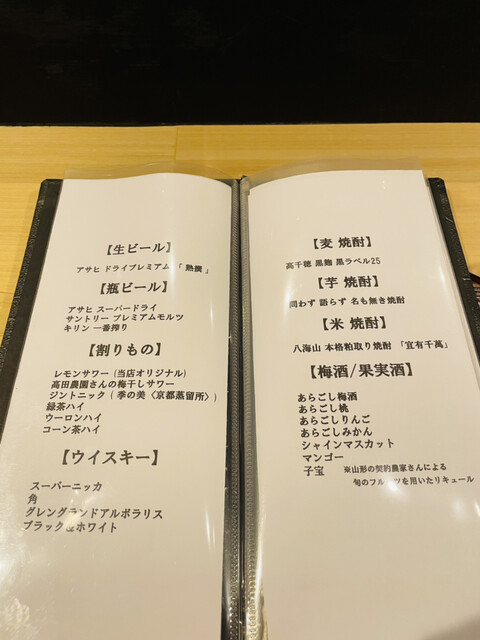 【生ビール】
アサヒ ドライプレミアム 「 熟撰 」
【瓶ビール】
アサヒ スーパードライ
サントリー プレミアムモルツ
キリン 一番搾り
【割りもの】
レモンサワー (当店オリジナル)
高田農園さんの梅干しサワー
ジントニック ( 季の美〈京都蒸留所〉)
緑茶ハイ
ウーロンハイ
コーン茶ハイ
【ウイスキー】
スーパーニッカ
角
グレングランドアルボラリス
ブラック&ホワイト
【麦 焼酎】
高千穂 黒麹 黒ラベル25
【芋 焼酎】
問わず 語らず 名も無き焼酎
【米 焼酎】
八海山 本格粕取り焼酎 「宜有千萬」
【梅酒/果実酒】
あらごし梅酒
あらごし桃
あらごしりんご
あらごしみかん
シャインマスカット
マンゴー
子宝 ※山形の契約農家さんによる
旬のフルーツを用いたリキュール